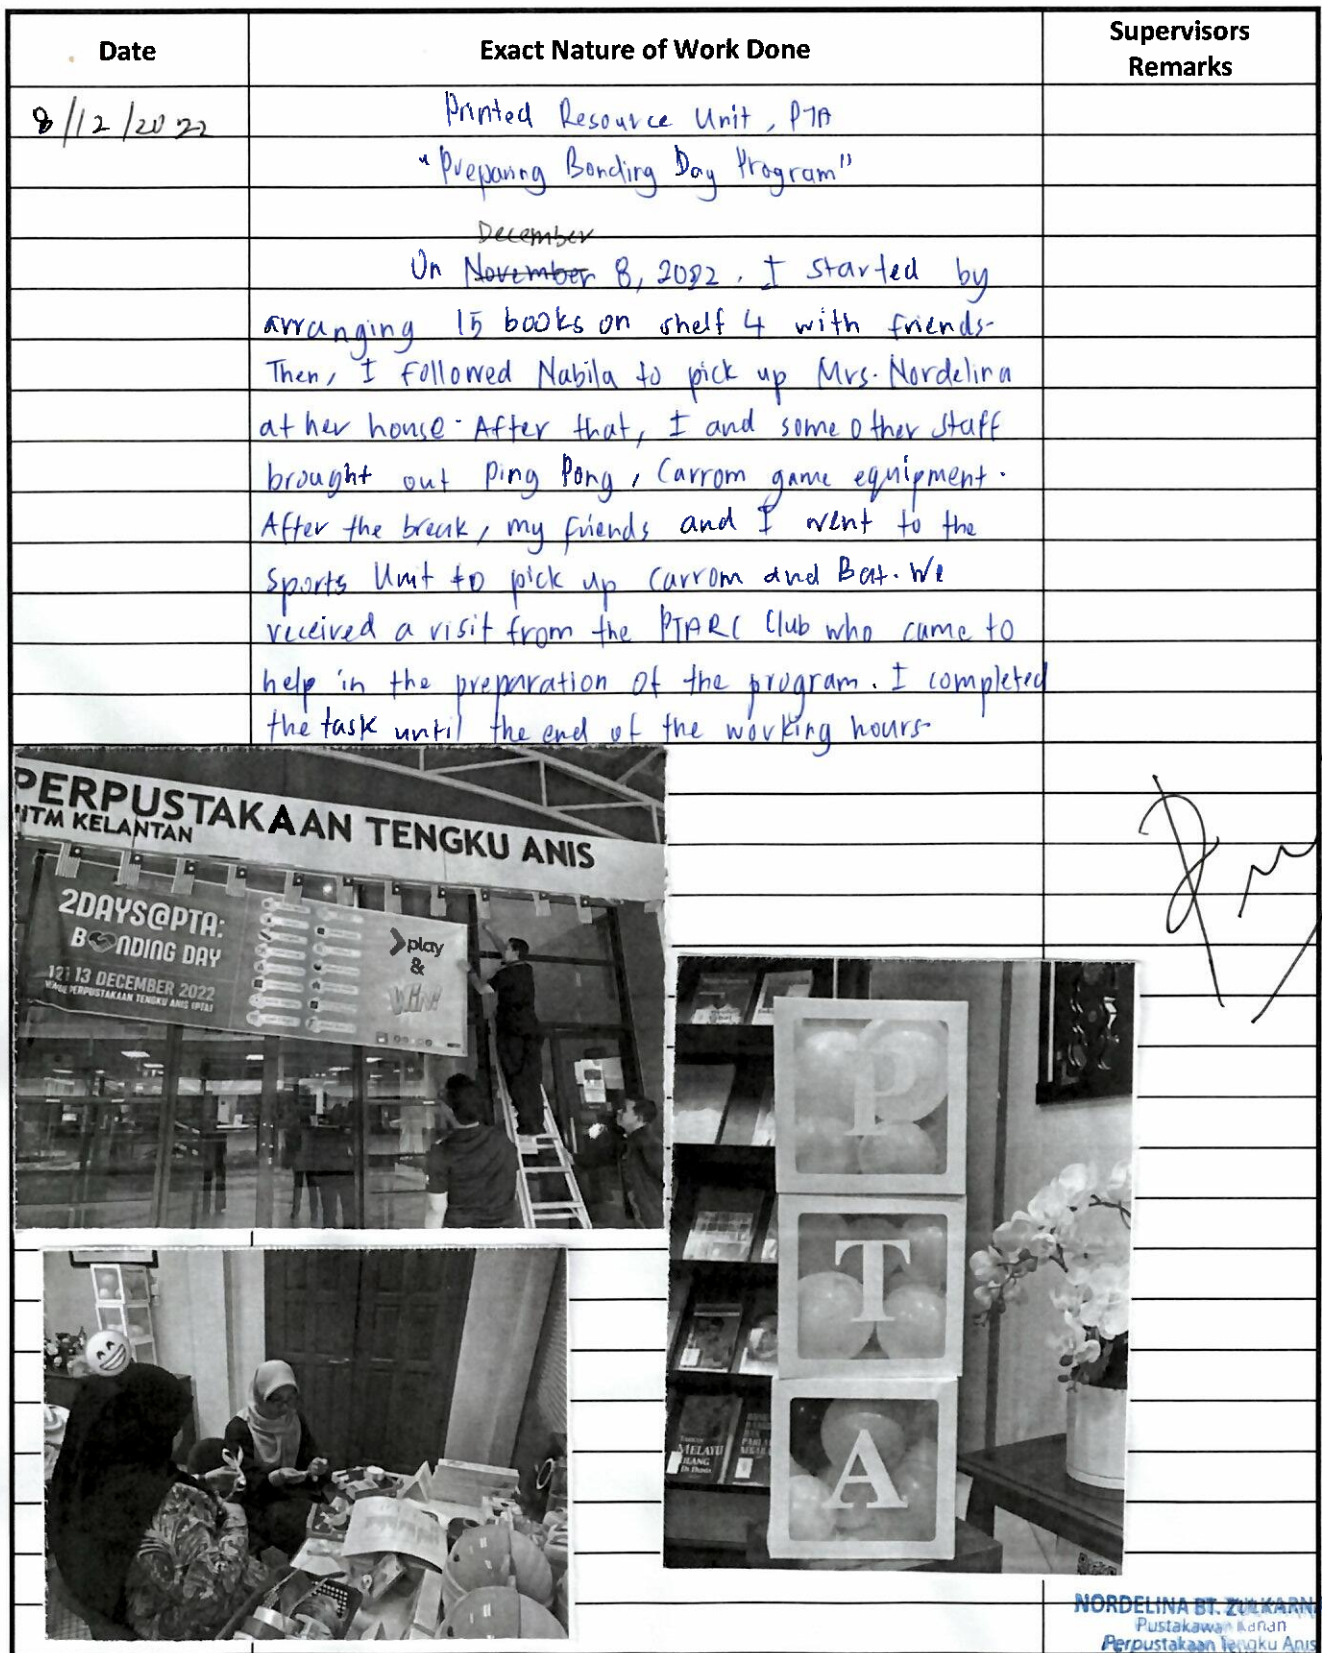 Date
Exact Nature of Work Done
Supervisors
Remarks
8/12/2022
Printed Resource Unit, PTA
"Preparing Bonding Day Program"
December
On November 8, 2022. I started by
arranging 15 books on shelf 4 with friends.
Then, I followed Nabila to pick up Mrs. Nordelina
at her house. After that, I and some other staff
brought out Ping Pong, Carrom game equipment.
After the break, my friends and I went to the
Sports Unit to pick up Carrom and Bat. We
received a visit from the PTARC Club who came to
help in the preparation of the program. I completed
the task until the end of the working hours.
PERPUSTAKAAN TENGKU ANIS
UITM KELANTAN
2DAYS@PTA:
BONDING DAY
12 13 DECEMBER 2022
PERPUSTAKAAN TENGKU ANIS (PTA)
play
&
Win!
P
T
A
MELAYU
HILANG
Di Dunia
NORDELINA BT. ZULKARN
Pustakawan Kanan
Perpustakaan Tengku Anis